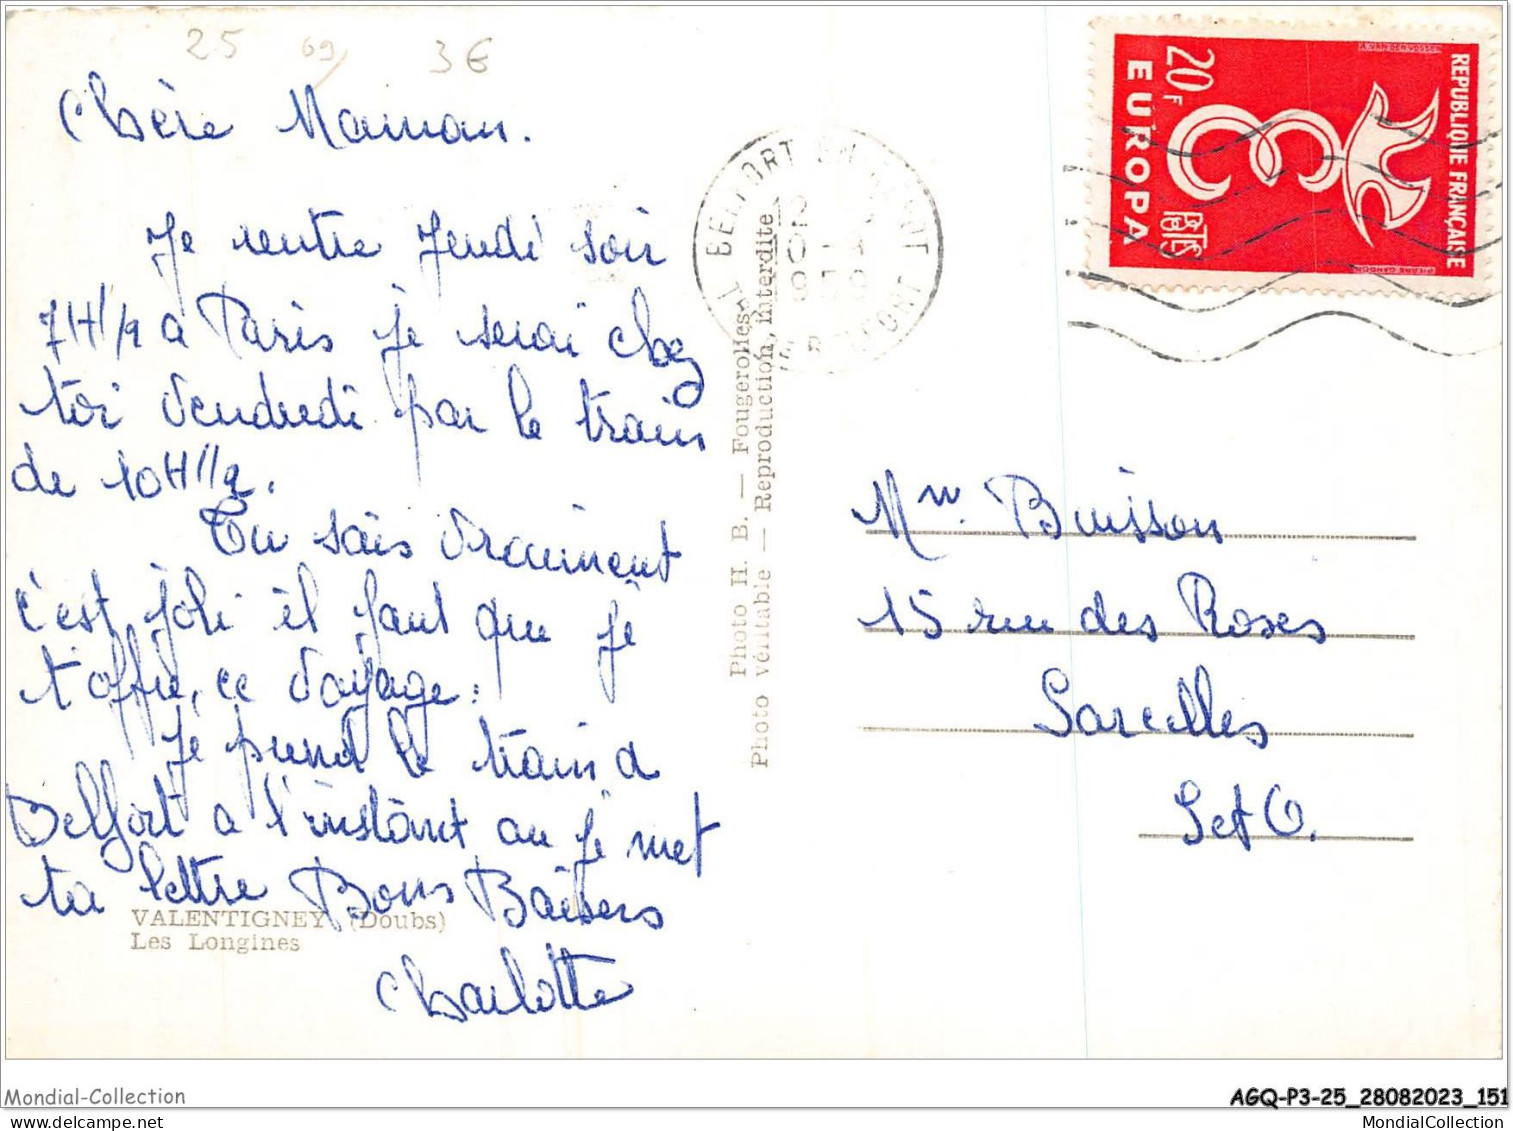 25 69 3€
Chère Maman.
Je rentre Jeudi soir
7H1/2 a Paris je serai chez
toi Vendredi par le train
de 10H1/2.
Tu sais vraiment
c'est joli il faut que je
t'offre, ce voyage.
Je prend le train a
Belfort a l'instant ou je met
ta lettre Bons Baisers
Charlotte
VALENTIGNEY (Doubs)
Les Longines
Photo H. B. — Fougerolles
Photo véritable — Reproduction interdite
BELFORT
BELFORT
REPUBLIQUE FRANÇAISE
20F
EUROPA
POSTES
PIERRE GANDON
Mme. Buisson
15 rue des Roses
Sarcelles
S et O.
Mondial-Collection
AGQ-P3-25_28082023_151
MondialCollection